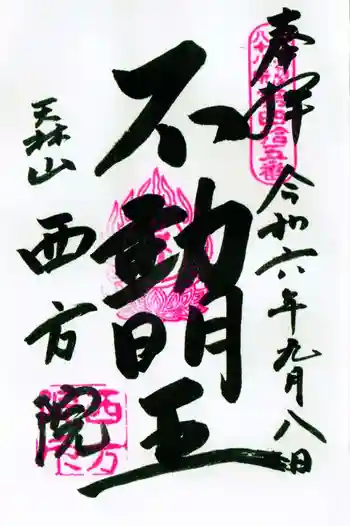 奉拝
令和六年九月八日
不動明王
天林山
西方院